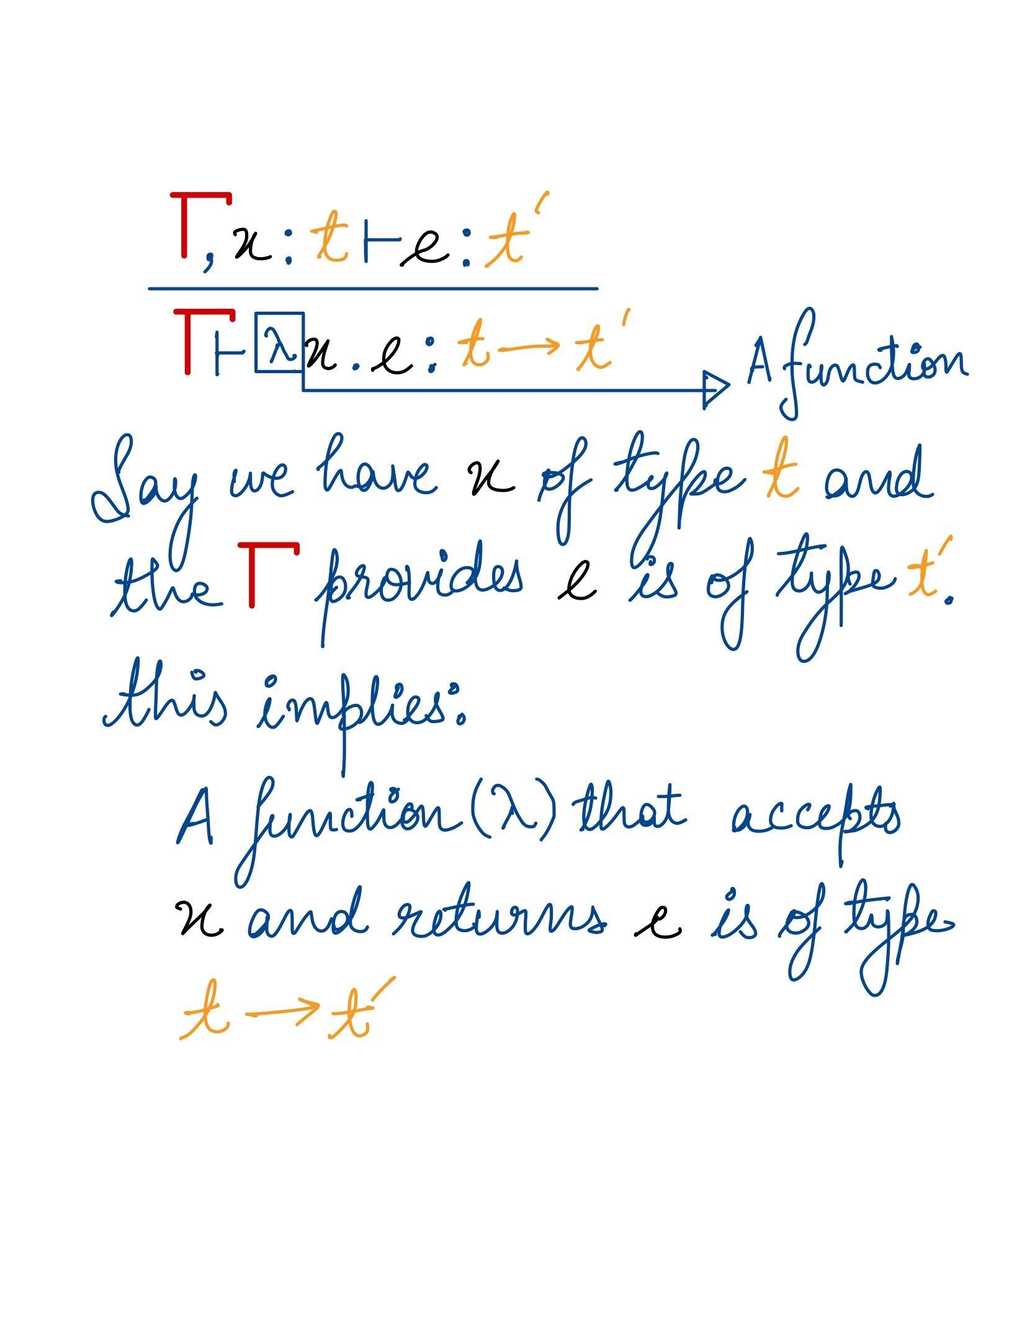 Γ, x : t ⊢ e : t′
Γ ⊢ λ x . e : t → t′
A function
Say we have x of type t and
the Γ provides e is of type t′.
this implies:
A function (λ) that accepts
x and returns e is of type
t → t′